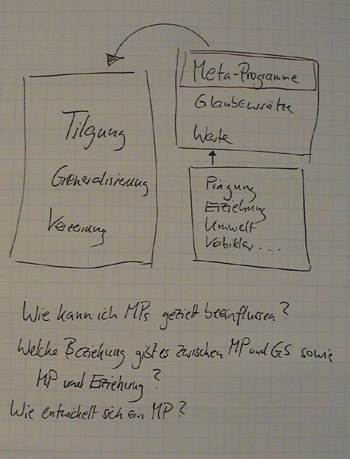 Meta-Programme
Glaubenssätze
Werte
Tilgung
Generalisierung
Verzerrung
Prägung
Erziehung
Umwelt
Vorbilder ....
Wie kann ich MPs gezielt beeinflussen?
Welche Beziehung gibt es zwischen MP und GS sowie
MP und Erziehung?
Wie entwickelt sich ein MP?